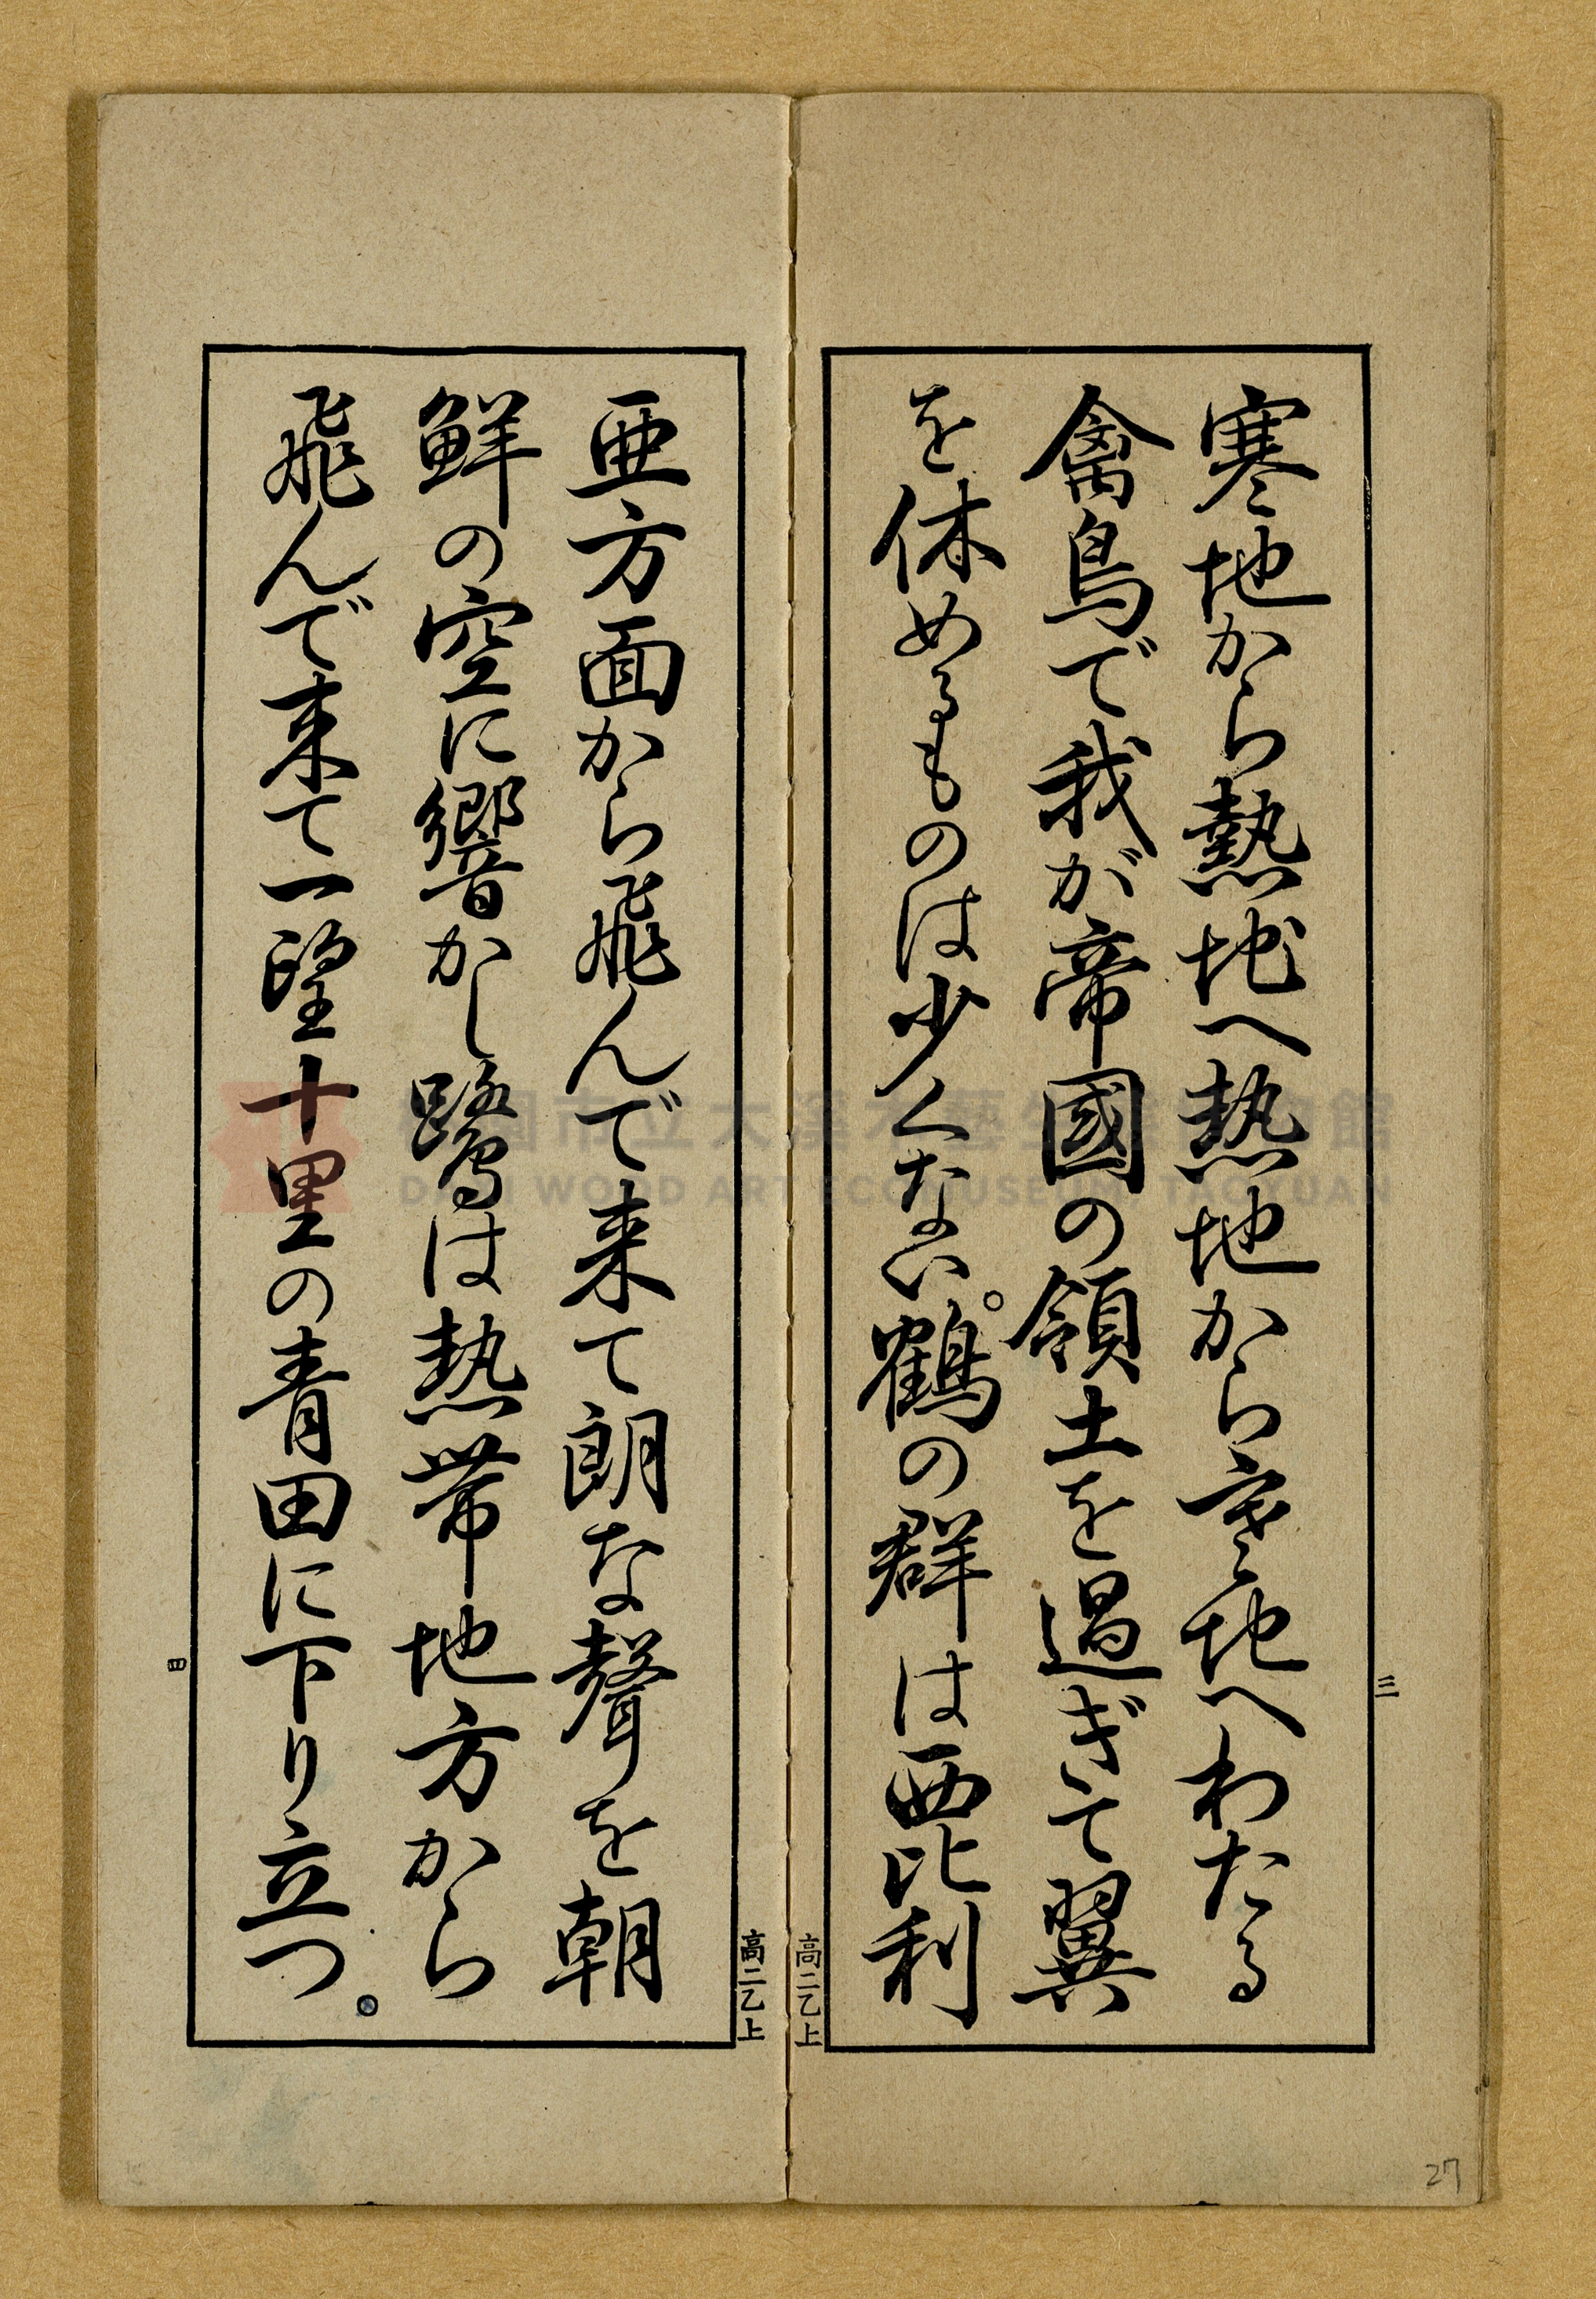 寒地から熱地へ熱地から寒地へわたる
禽鳥で我が帝國の領土を過ぎて翼
を休めるものは少くない。鶴の群は西比利
三
高二乙上
亜方面から飛んで来て朗な聲を朝
鮮の空に響かし鷺は熱帯地方から
飛んで来て一望十里の青田に下り立つ。
高二乙上
四
27
桃園市立大溪木藝生態博物館
DAXI WOOD ART ECOMUSEUM, TAOYUAN